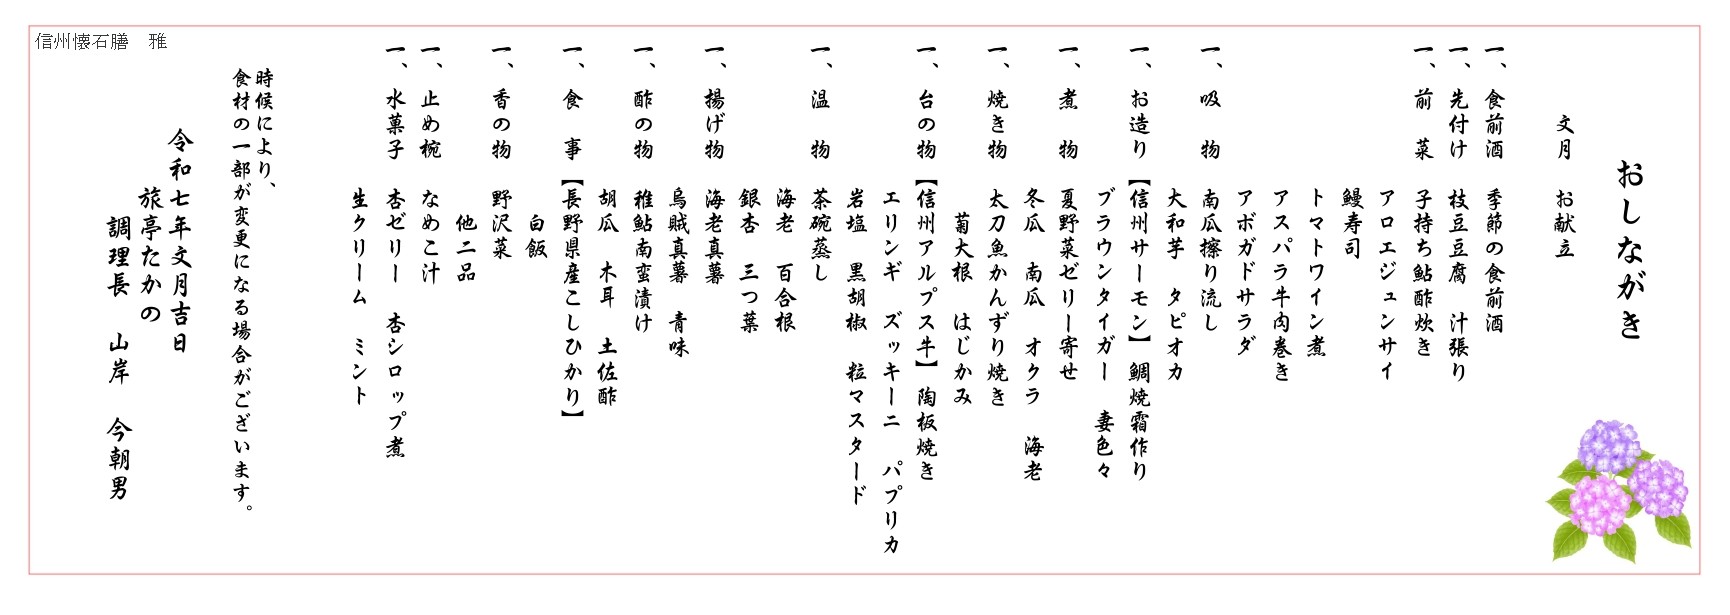 信州懐石膳　雅
おしながき
文月　お献立
一、食前酒　季節の食前酒
一、先付け　枝豆豆腐　汁張り
一、前　菜　子持ち鮎酢炊き
アロエジュンサイ
鰻寿司
トマトワイン煮
アスパラ牛肉巻き
アボガドサラダ
一、吸　物　南瓜擦り流し
大和芋　タピオカ
一、お造り　【信州サーモン】　鯛焼霜作り
ブラウンタイガー　妻色々
一、煮　物　夏野菜ゼリー寄せ
冬瓜　南瓜　オクラ　海老
一、焼き物　太刀魚かんずり焼き
菊大根　はじかみ
一、台の物　【信州アルプス牛】　陶板焼き
エリンギ　ズッキーニ　パプリカ
岩塩　黒胡椒　粒マスタード
一、温　物　茶碗蒸し
海老　百合根
銀杏　三つ葉
一、揚げ物　海老真薯
烏賊真薯　青味
一、酢の物　稚鮎南蛮漬け
胡瓜　木耳　土佐酢
一、食　事　【長野県産こしひかり】
白飯
一、香の物　野沢菜
他二品
一、止め椀　なめこ汁
一、水菓子　杏ゼリー　杏シロップ煮
生クリーム　ミント
時候により、
食材の一部が変更になる場合がございます。
令和七年文月吉日
旅亭たかの
調理長　山岸　今朝男